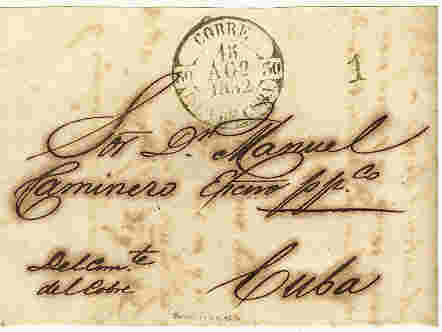 COBRE
15
AGO
1852
30 30
1
Sor. Dn. Manuel
Caminero Escno. ppco.
Del Comte.
del Cobre
Cuba